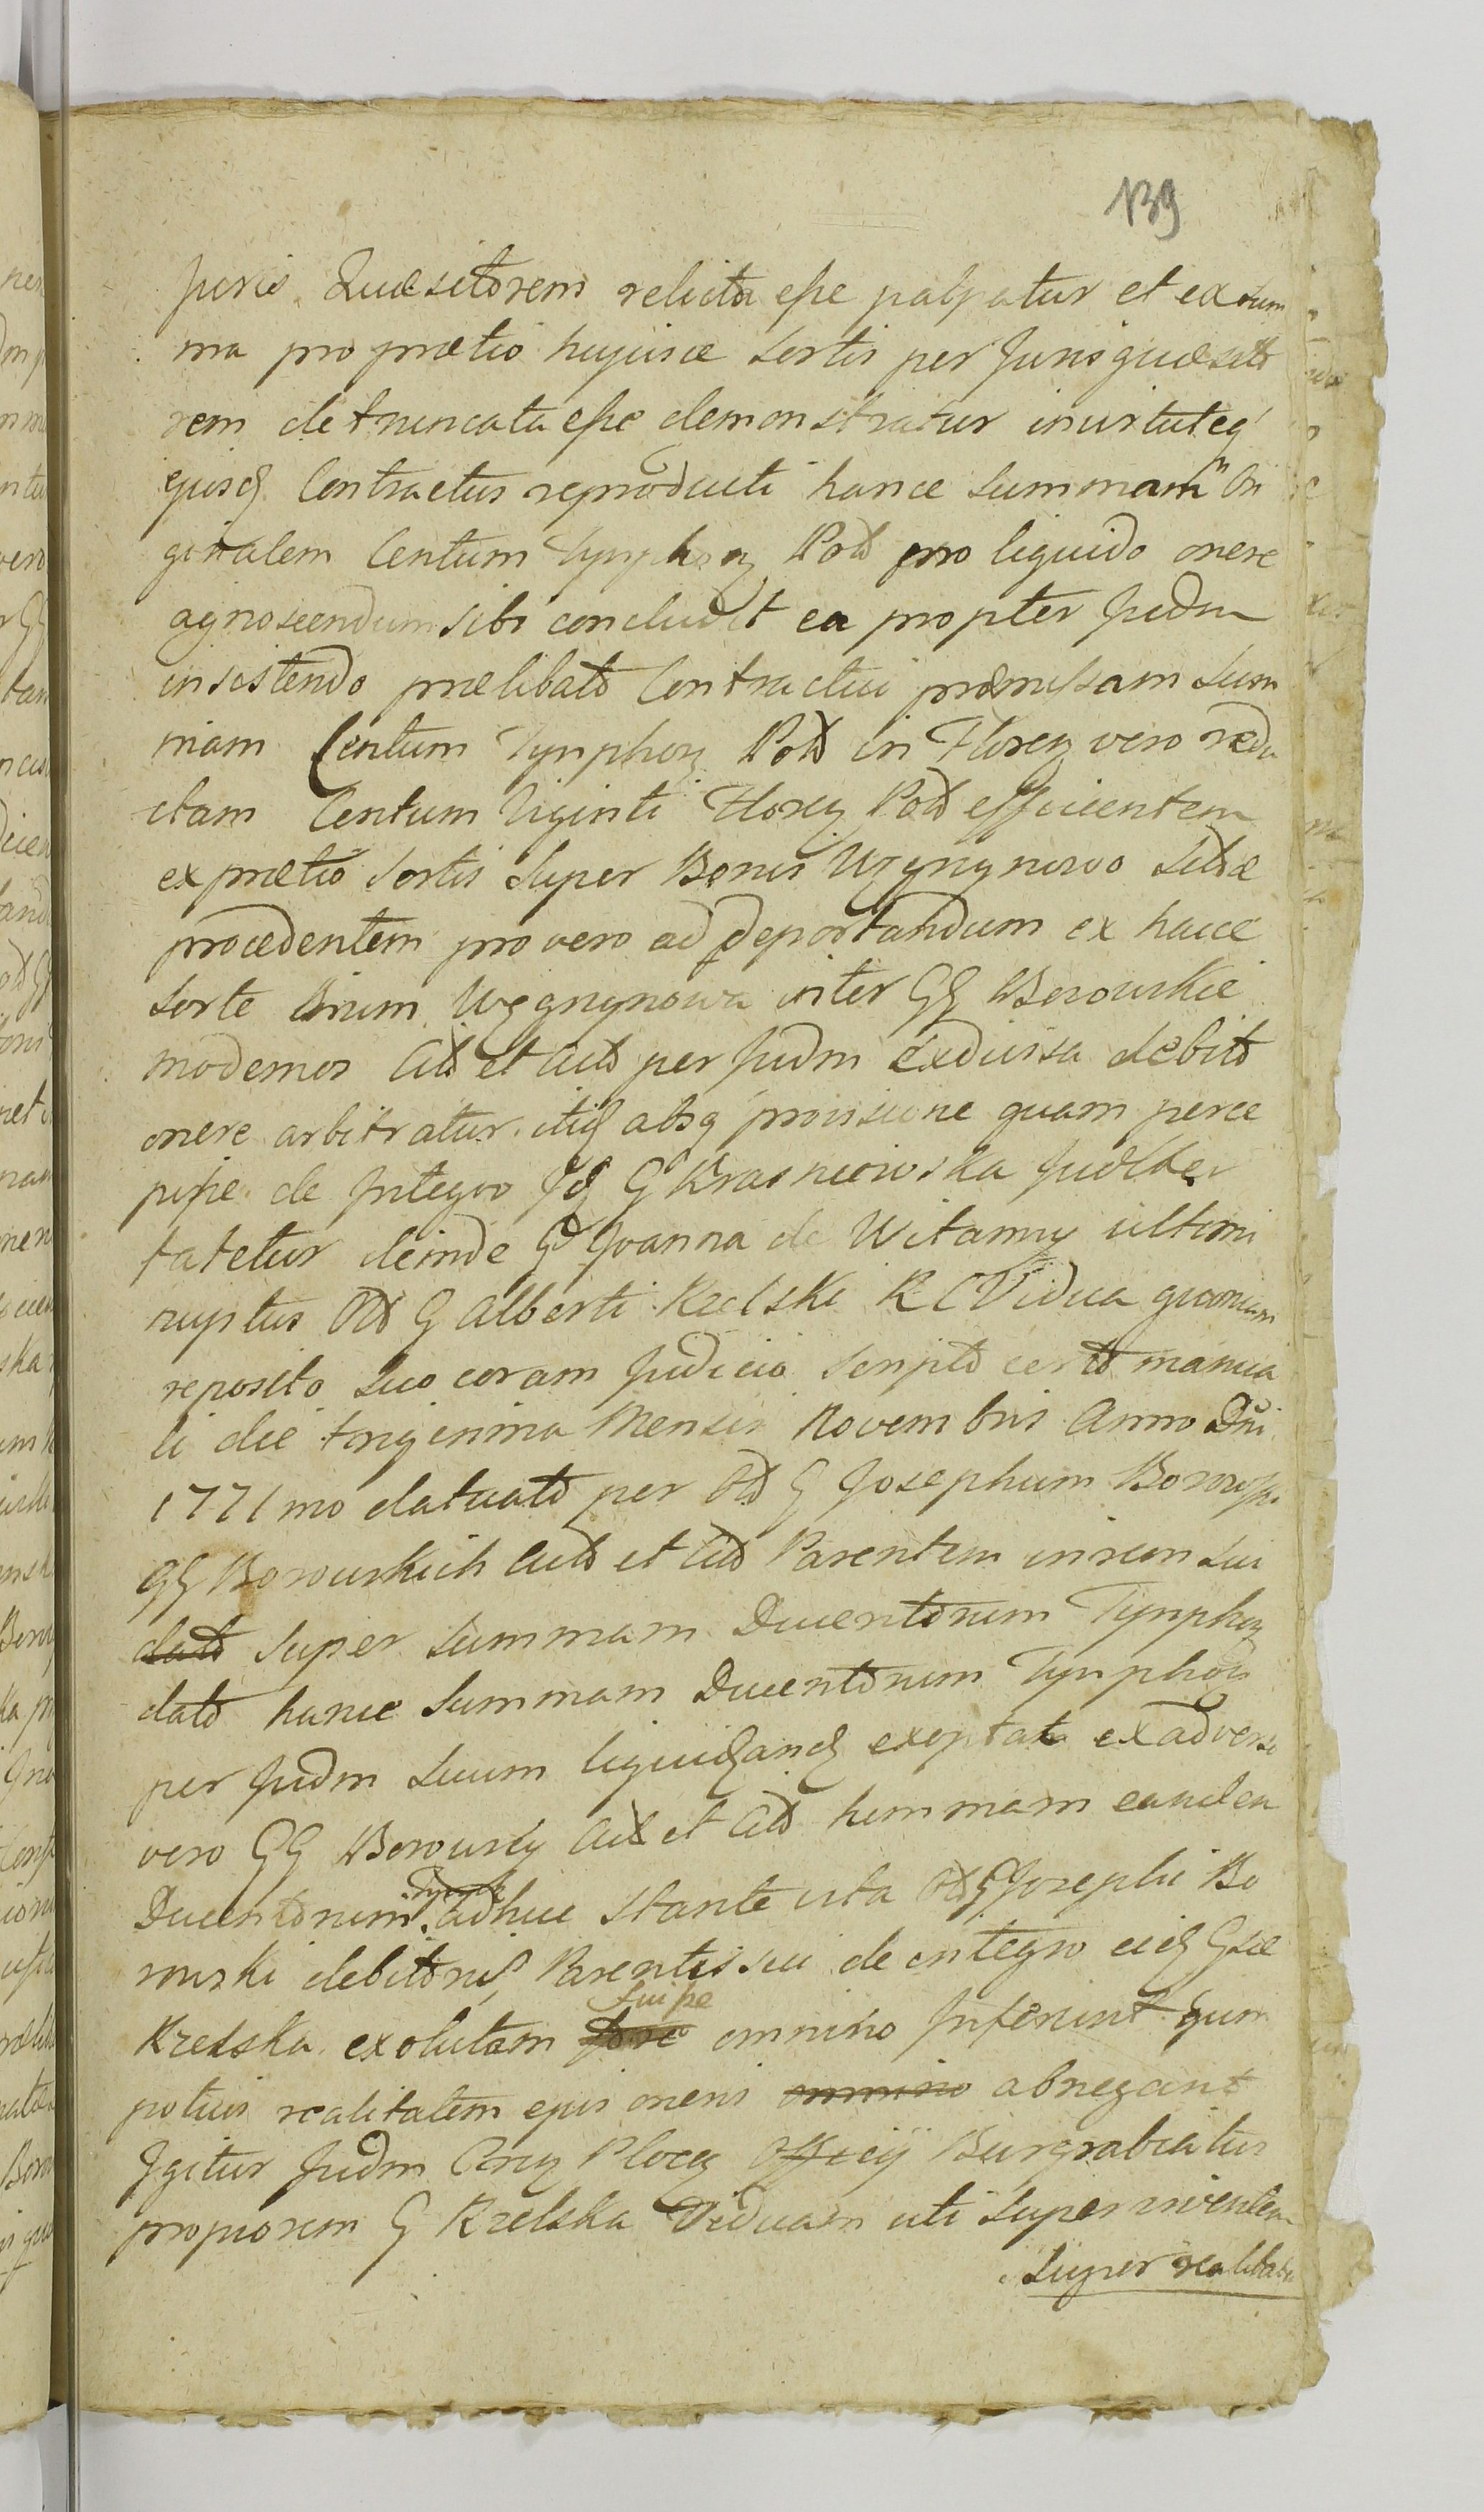 139
Juris Quæsitorem relicta esse palpatur et ex sum
ma pro prætio hujusce Sortis per Juris quæsito
rem detruncata esse demonstratur invirtuteq
ejusd Contractus reproducti hance Summam Ori
ginalem Centum Tympho Pol pro liquido onere
agnoscendum sibi concludit ea propter Judm
insistendo prælibato Contractui præmissam Sum
mam Centum Tymphor Pol in Floren vero redu
ctam Centum Viginti Floren Pol efficientem
ex prætio Sortis Super Bonis Wgnynowo Sitæ
procedentem pro vero ad deportandum ex hacce
Sorte Bnum Wgnynowa inter GG Borowskie
modernos Act et Citt per Judm exdivisa debito
onere arbitratur. itid absq provisione quam perce
pisse de Integro G Krasniewska
fatetur deinde G Joanna de Witamy ultimi
ruptus Olt G Alberti Krelski R C Vidua quoniam
reposito Suo coram Judicio Scripto certo manua
li die trigesima Mensis Novembris Anno Dni
1771mo datuato per Olt G Josephum Borowski
GG Borowskich Act et Citt Parentem in rem Sui
dato Super Summam Ducentorum Tymphor
dato hance Summam Ducentorum Tymphor
per Judm Suum liquidand exoptat ex adverso
vero GG Borowscy Act et Citt Summam eandem
Ducentorum adhuc Stante vita Olt G Josephi Bo
rowski debitoris Parentis sui de integro eid Gsæ
Krelska exolutam fore fuisse omnino Inferunt quin
potius realitatem ejus oneris omnino abnegant
Igitur Judm Officij Burgrabiatus
propiorem G Krelska Viduam uti Superviventem
Super realitate